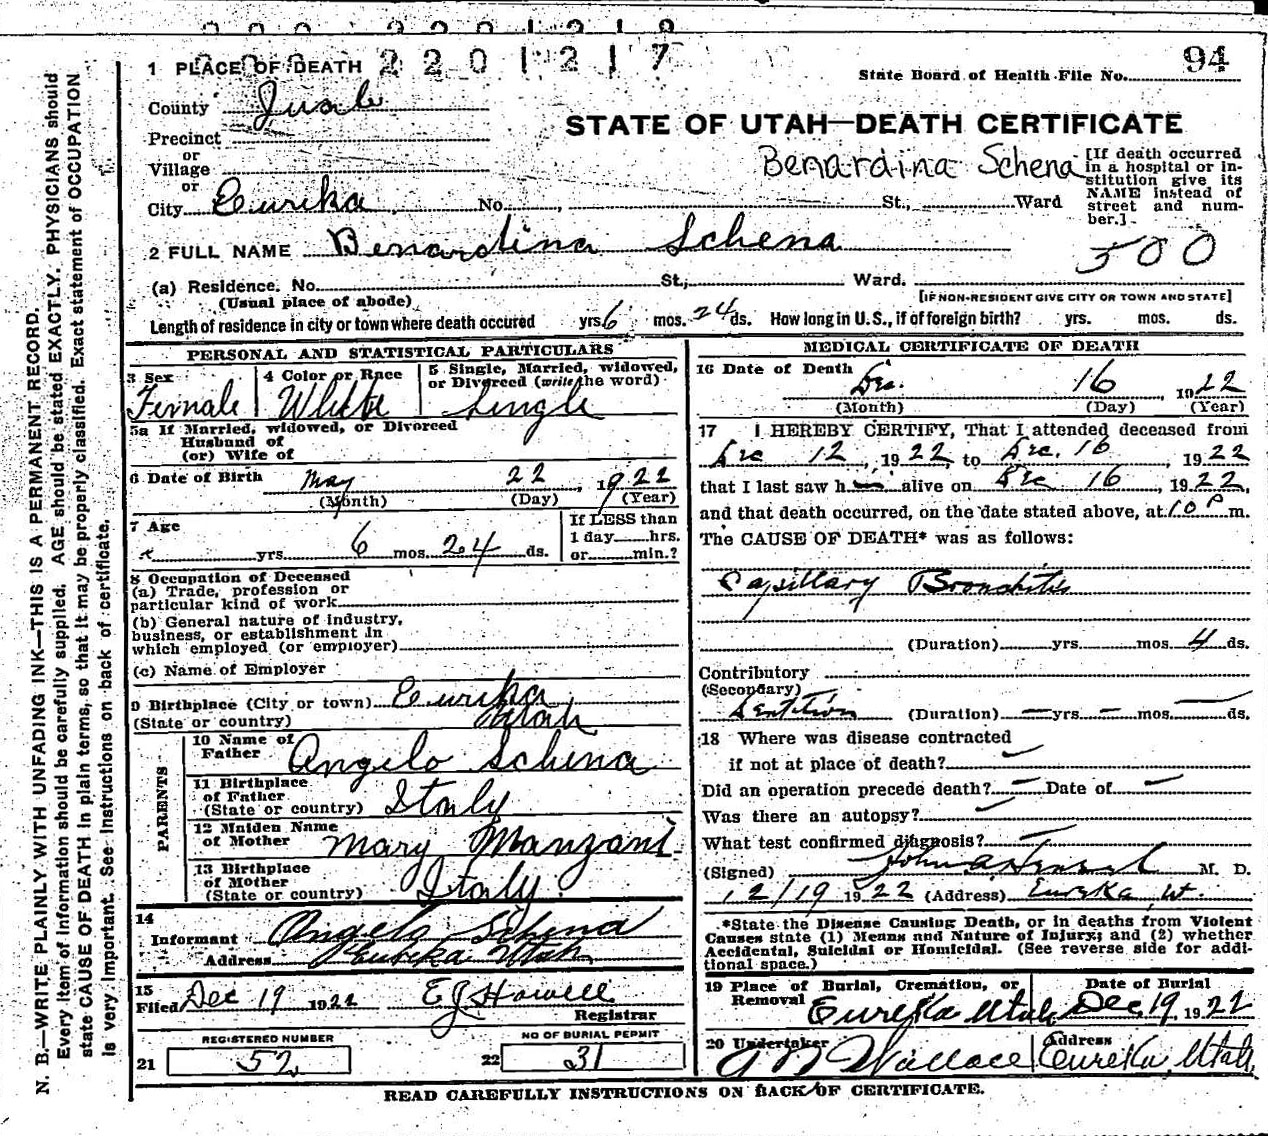 2201217
94
State Board of Health File No.
1 PLACE OF DEATH
County Juab
STATE OF UTAH—DEATH CERTIFICATE
Precinct
or
Village
or
Benardina Schena
[If death occurred in a hospital or institution give its NAME instead of street and number.]
City Eureka No. , St., Ward
2 FULL NAME Benardina Schena
500
(a) Residence. No. St., Ward.
(Usual place of abode)
[IF NON-RESIDENT GIVE CITY OR TOWN AND STATE]
Length of residence in city or town where death occured yrs. 6 mos. 24 ds. How long in U.S., if of foreign birth? yrs. mos. ds.
PERSONAL AND STATISTICAL PARTICULARS
3 Sex
Female
4 Color or Race
White
5 Single, Married, widowed, or Divorced (write the word)
Single
5a If Married, widowed, or Divorced
Husband of
(or) Wife of
6 Date of Birth May 22, 1922
(Month) (Day) (Year)
7 Age
yrs. 6 mos. 24 ds.
If LESS than
1 day hrs.
or min.?
8 Occupation of Deceased
(a) Trade, profession or
particular kind of work
(b) General nature of industry,
business, or establishment in
which employed (or employer)
(c) Name of Employer
9 Birthplace (City or town) Eureka
(State or country) Utah
PARENTS
10 Name of Father Angelo Schena
11 Birthplace of Father
(State or country) Italy
12 Maiden Name of Mother Mary Manzani
13 Birthplace of Mother
(State or country) Italy
14
Informant Angelo Schena
Address Eureka Utah
15
Filed Dec 19 1922 E J Howell
Registrar
REGISTERED NUMBER
21 52
NO OF BURIAL PERMIT
22 31
MEDICAL CERTIFICATE OF DEATH
16 Date of Death
Dec. 16, 1922
(Month) (Day) (Year)
17 I HEREBY CERTIFY, That I attended deceased from
Dec 12, 1922, to Dec. 16, 1922
that I last saw h alive on Dec 16, 1922,
and that death occurred, on the date stated above, at 10 P m.
The CAUSE OF DEATH* was as follows:
Capillary Bronchitis
(Duration) yrs. mos. 4 ds.
Contributory
(Secondary)
Dentition (Duration) — yrs. — mos. — ds.
18 Where was disease contracted
if not at place of death?
Did an operation precede death? — Date of —
Was there an autopsy?
What test confirmed diagnosis?
(Signed) John M. D.
12/19 1922 (Address) Eureka, Ut.
*State the Disease Causing Death, or in deaths from Violent
Causes state (1) Means and Nature of Injury; and (2) whether
Accidental, Suicidal or Homicidal. (See reverse side for addi-
tional space.)
19 Place of Burial, Cremation, or Removal Eureka Utah
Date of Burial
Dec, 19, 1922
20 Undertaker
Wallace
Address
Eureka, Utah
READ CAREFULLY INSTRUCTIONS ON BACK OF CERTIFICATE.
N. B.—WRITE PLAINLY WITH UNFADING INK—THIS IS A PERMANENT RECORD.
Every item of information should be carefully supplied. AGE should be stated EXACTLY. PHYSICIANS should
state CAUSE OF DEATH in plain terms, so that it may be properly classified. Exact statement of OCCUPATION
is very important. See Instructions on back of certificate.